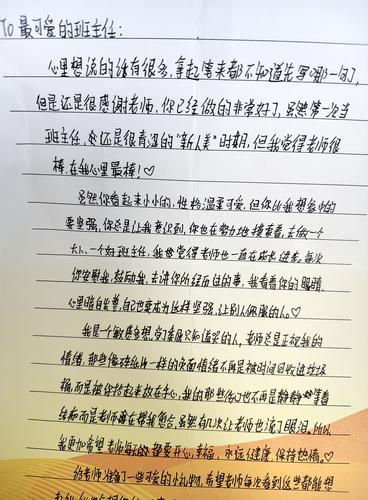 To 最可爱的班主任：
心里想说的话有很多，拿起笔来都不知道先写哪一句了，
但是还是很感谢老师，你已经做的非常好了，虽然第一次当
班主任，还是很青涩的“新人美”时期，但我觉得老师很
棒，在我心里最棒！♡
虽然你看起来小小的，性格温柔可爱，但你比我想象中的
要坚强，你总是让我意识到，你也在努力地摸索着，去做一个
大人，一个好班主任，我也觉得老师也一直在成长，进步，每次
你安慰我，鼓励我，去讲你所经历过的事，我看着你的眼睛，
心里暗自发誓，自己也要成为这样坚强，让别人佩服的人。♡
我是个敏感多想，学习差只知道哭的人，老师总是正视我的
情绪，那些像碎纸片一样的负面情绪不再是被时间回收进垃圾
桶，而是被你拾起来放在手心，我的那些伤口也不再是静静等着
结痂而是老师在帮我愈合，虽然有几次让老师也流了眼泪，所以
我更加希望老师每天的都要开心，幸福，永远健康，保持热情。♡
给老师准备了一些可爱的小礼物，希望老师每次看到这些都能想